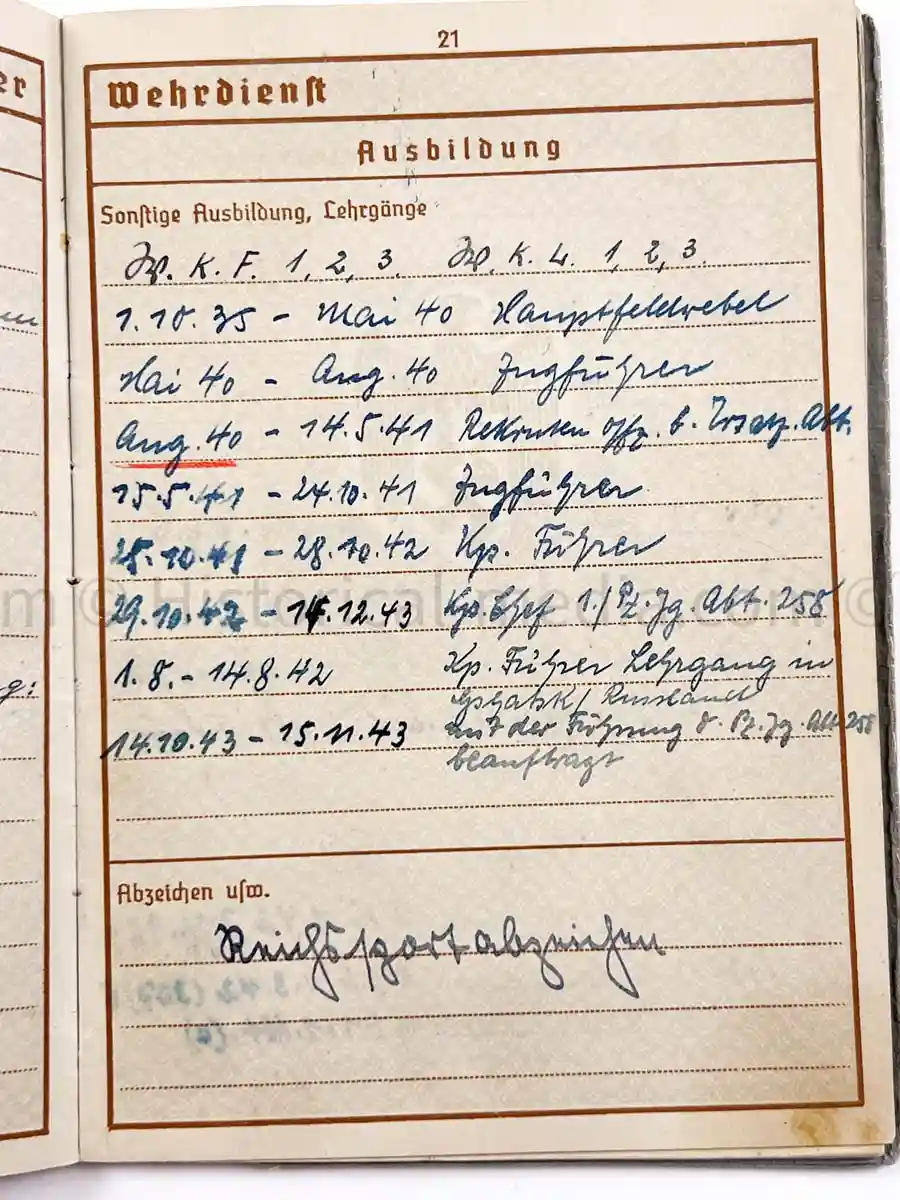 21
er
Wehrdienst
Ausbildung
Sonstige Ausbildung, Lehrgänge
W. K. F. 1, 2, 3. W. K. L. 1, 2, 3.
1.10.35 - Mai 40 Hauptfeldwebel
Mai 40 - Aug. 40 Zugführer
Aug. 40 - 14.5.41 Rekruten offz. b. Ersatz. Abt.
15.5.41 - 24.10.41 Zugführer
25.10.41 - 28.10.42 Kp. Führer
29.10.42 - 14.12.43 Kp. Chef 1./Pz. Jg. Abt. 258
1.8. - 14.8.42 Kp. Führer Lehrgang in
Gshatsk / Russland
14.10.43 - 15.11.43 mit der Führung d. Pz. Jg. Abt 258
beauftragt
g:
Abzeichen usw.
Reichssportabzeichen
m © Historicalmedia.com ©